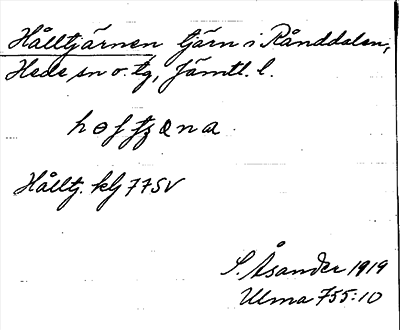 Hålltjärnen tjärn i Rånddalen,
Hede sn o. tg, Jämtl. l.
Hålltj. klj 77SV
S. Åsander 1919
Ulma 755:10